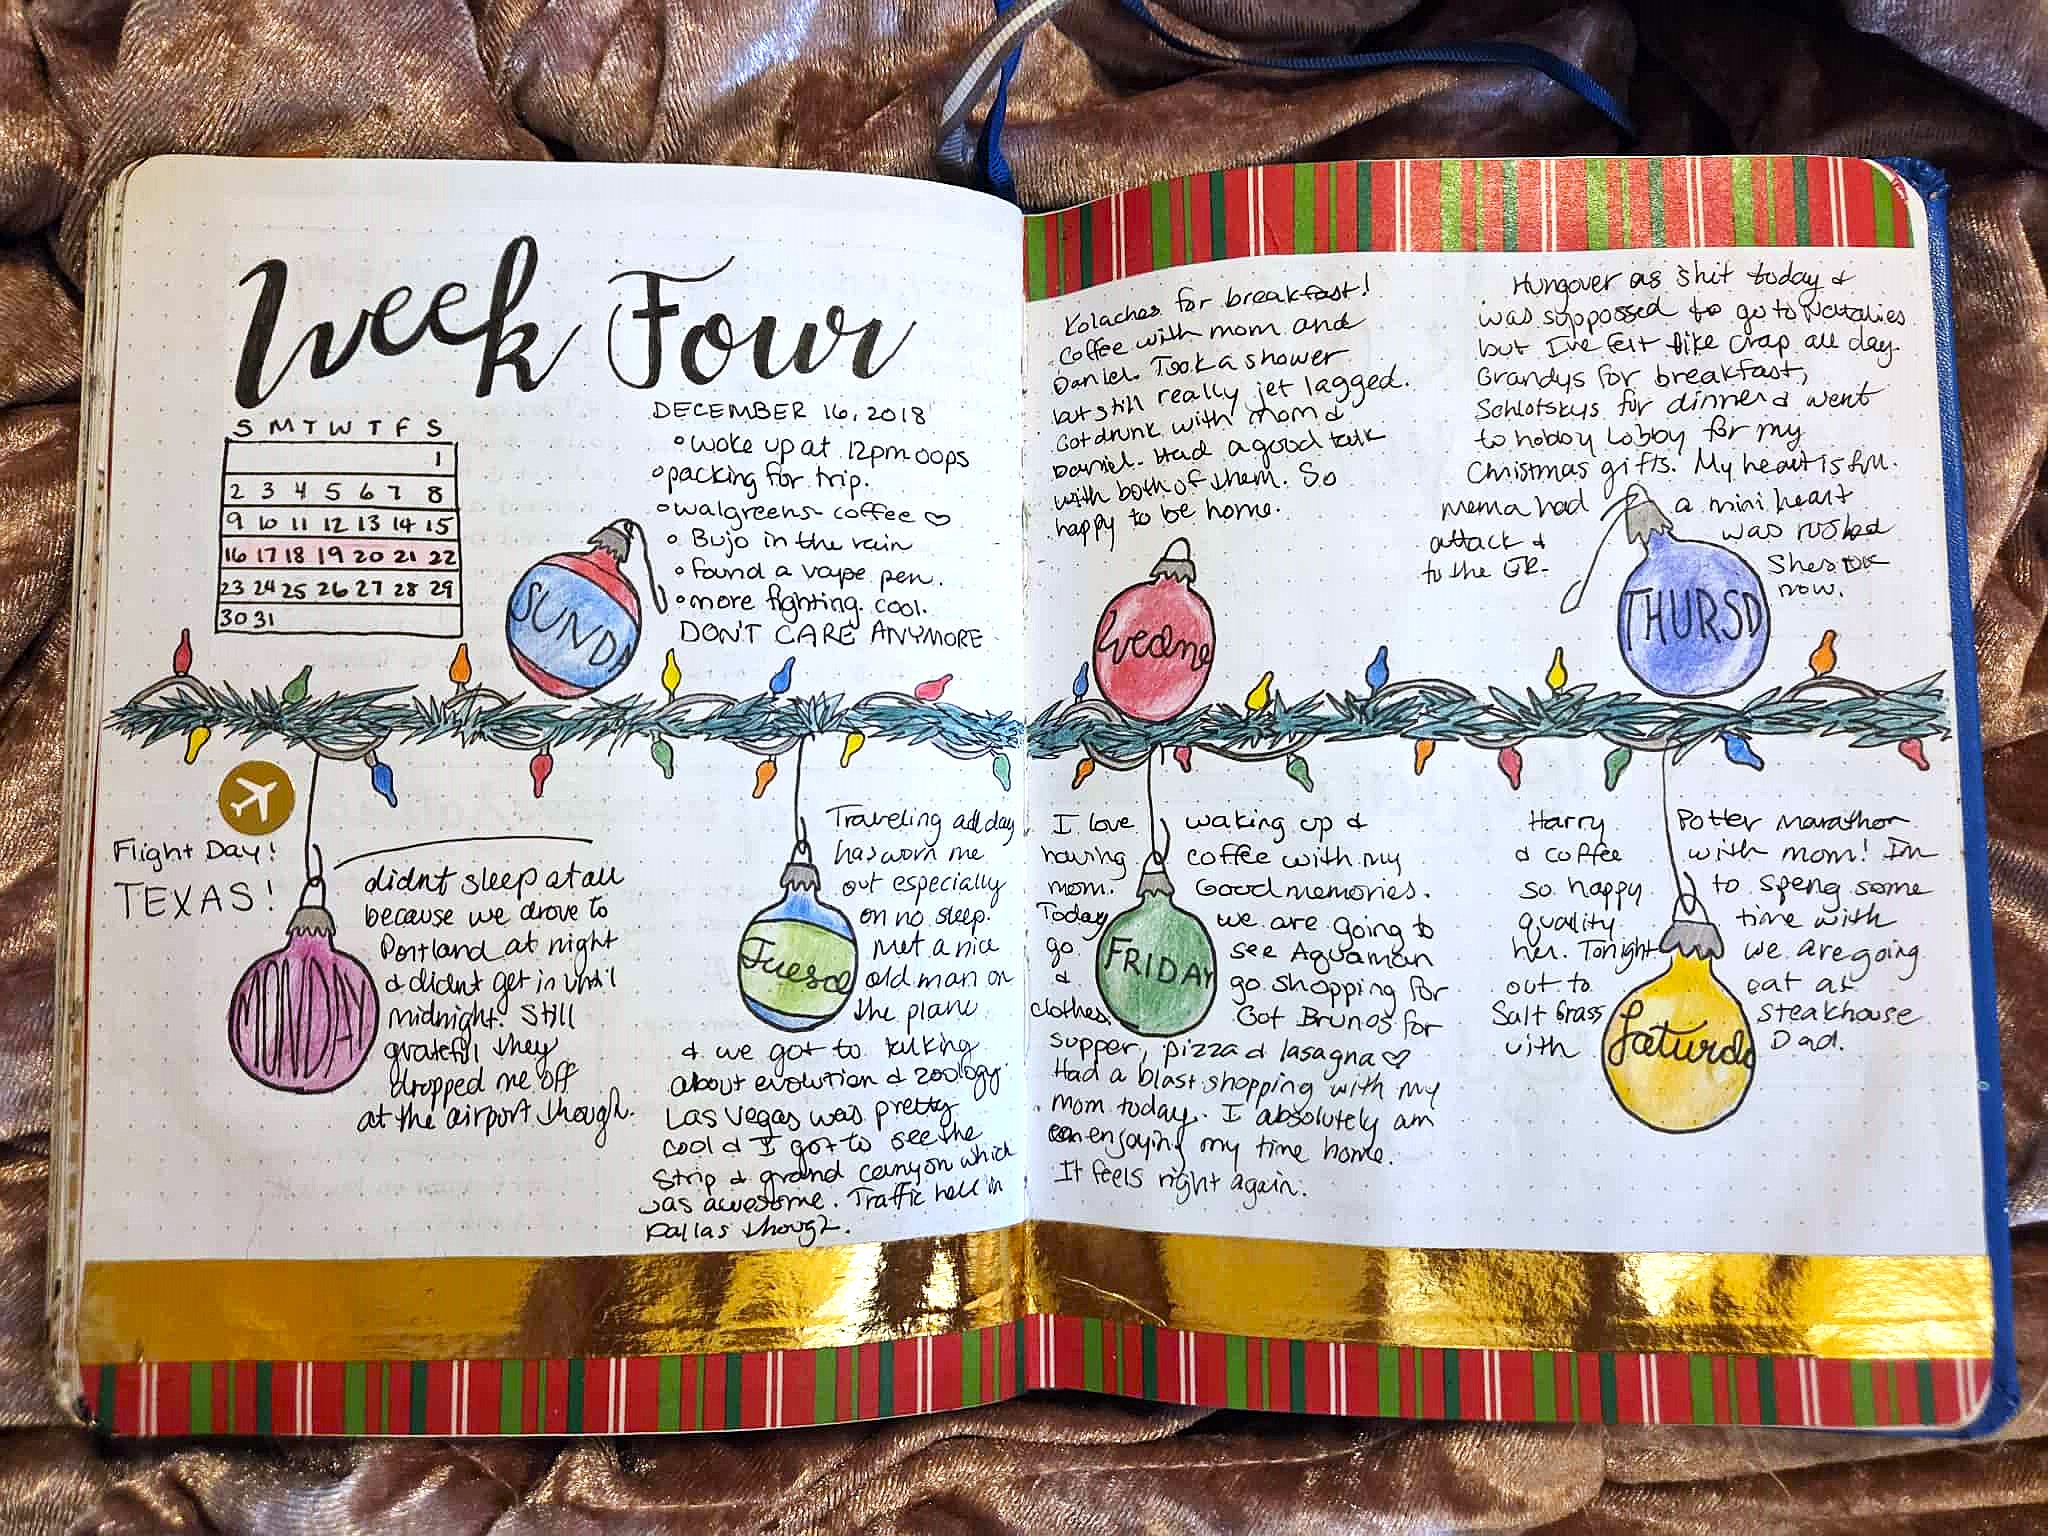 Week Four
S M T W T F S
1
2 3 4 5 6 7 8
9 10 11 12 13 14 15
16 17 18 19 20 21 22
23 24 25 26 27 28 29
30 31
DECEMBER 16, 2018
• woke up at 12pm oops
• packing for trip.
• walgreens coffee ♡
• Bujo in the rain
• found a vape pen.
• more fighting. cool.
DON'T CARE ANYMORE
SUNDA
Flight Day!
TEXAS!
MONDAY
didnt sleep at all
because we drove to
Portland at night
& didnt get in until
midnight. Still
grateful they
dropped me off
at the airport though.
Tuesd
Traveling all day
has worn me
out especially
on no sleep.
Met a nice
old man on
the plane
& we got to talking
about evolution & zoology.
Las Vegas was pretty
cool & I got to see the
Strip & grand canyon which
was awesome. Traffic hell in
Dallas though.
Kolaches for breakfast!
Coffee with mom and
Daniel. Took a shower
but still really jet lagged.
Got drunk with mom &
Daniel. Had a good talk
with both of them. So
happy to be home.
Wedne
Hungover as shit today &
was suppossed to go to Natalies
but I've felt like crap all day.
Grandys for breakfast,
Schlotskys for dinner & went
to hobby Lobby for my
Christmas gifts. My heart is full.
mema had a mini heart
attack & was rushed
to the ER. Shes OK
now.
THURSD
I love waking up &
having coffee with my
mom. Good memories.
Today we are going to
go see Aquaman
& go shopping for
clothes. Got Brunos for
supper, pizza & lasagna ♡
Had a blast shopping with my
mom today. I absolutely am
enjoying my time home.
It feels right again.
FRIDAY
Harry Potter marathon
& coffee with mom! Im
so happy to speng some
quality time with
her. Tonight we are going
out to eat at
Salt Grass steakhouse
with Dad.
Saturda